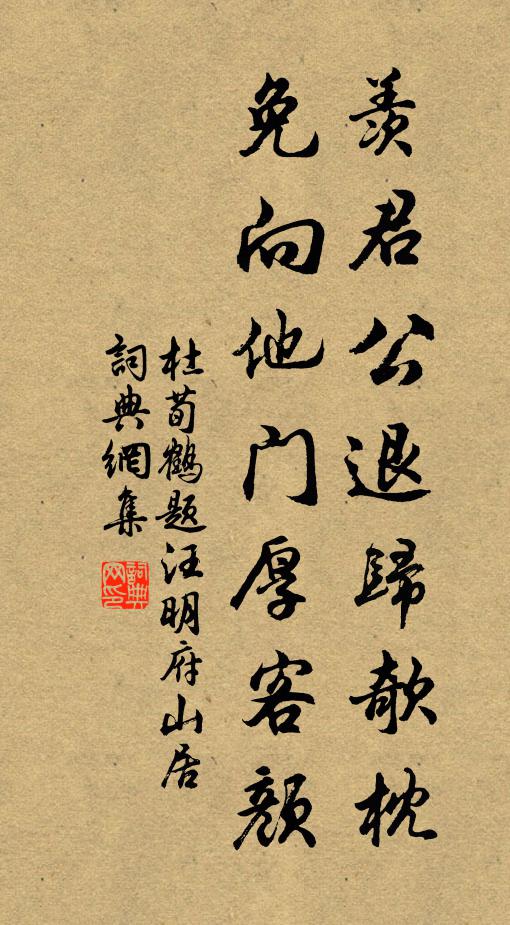 羨君公退歸欹枕
免向他门厚客顏
杜荀鶴題汪明府山居
詞典網集
詞典網印